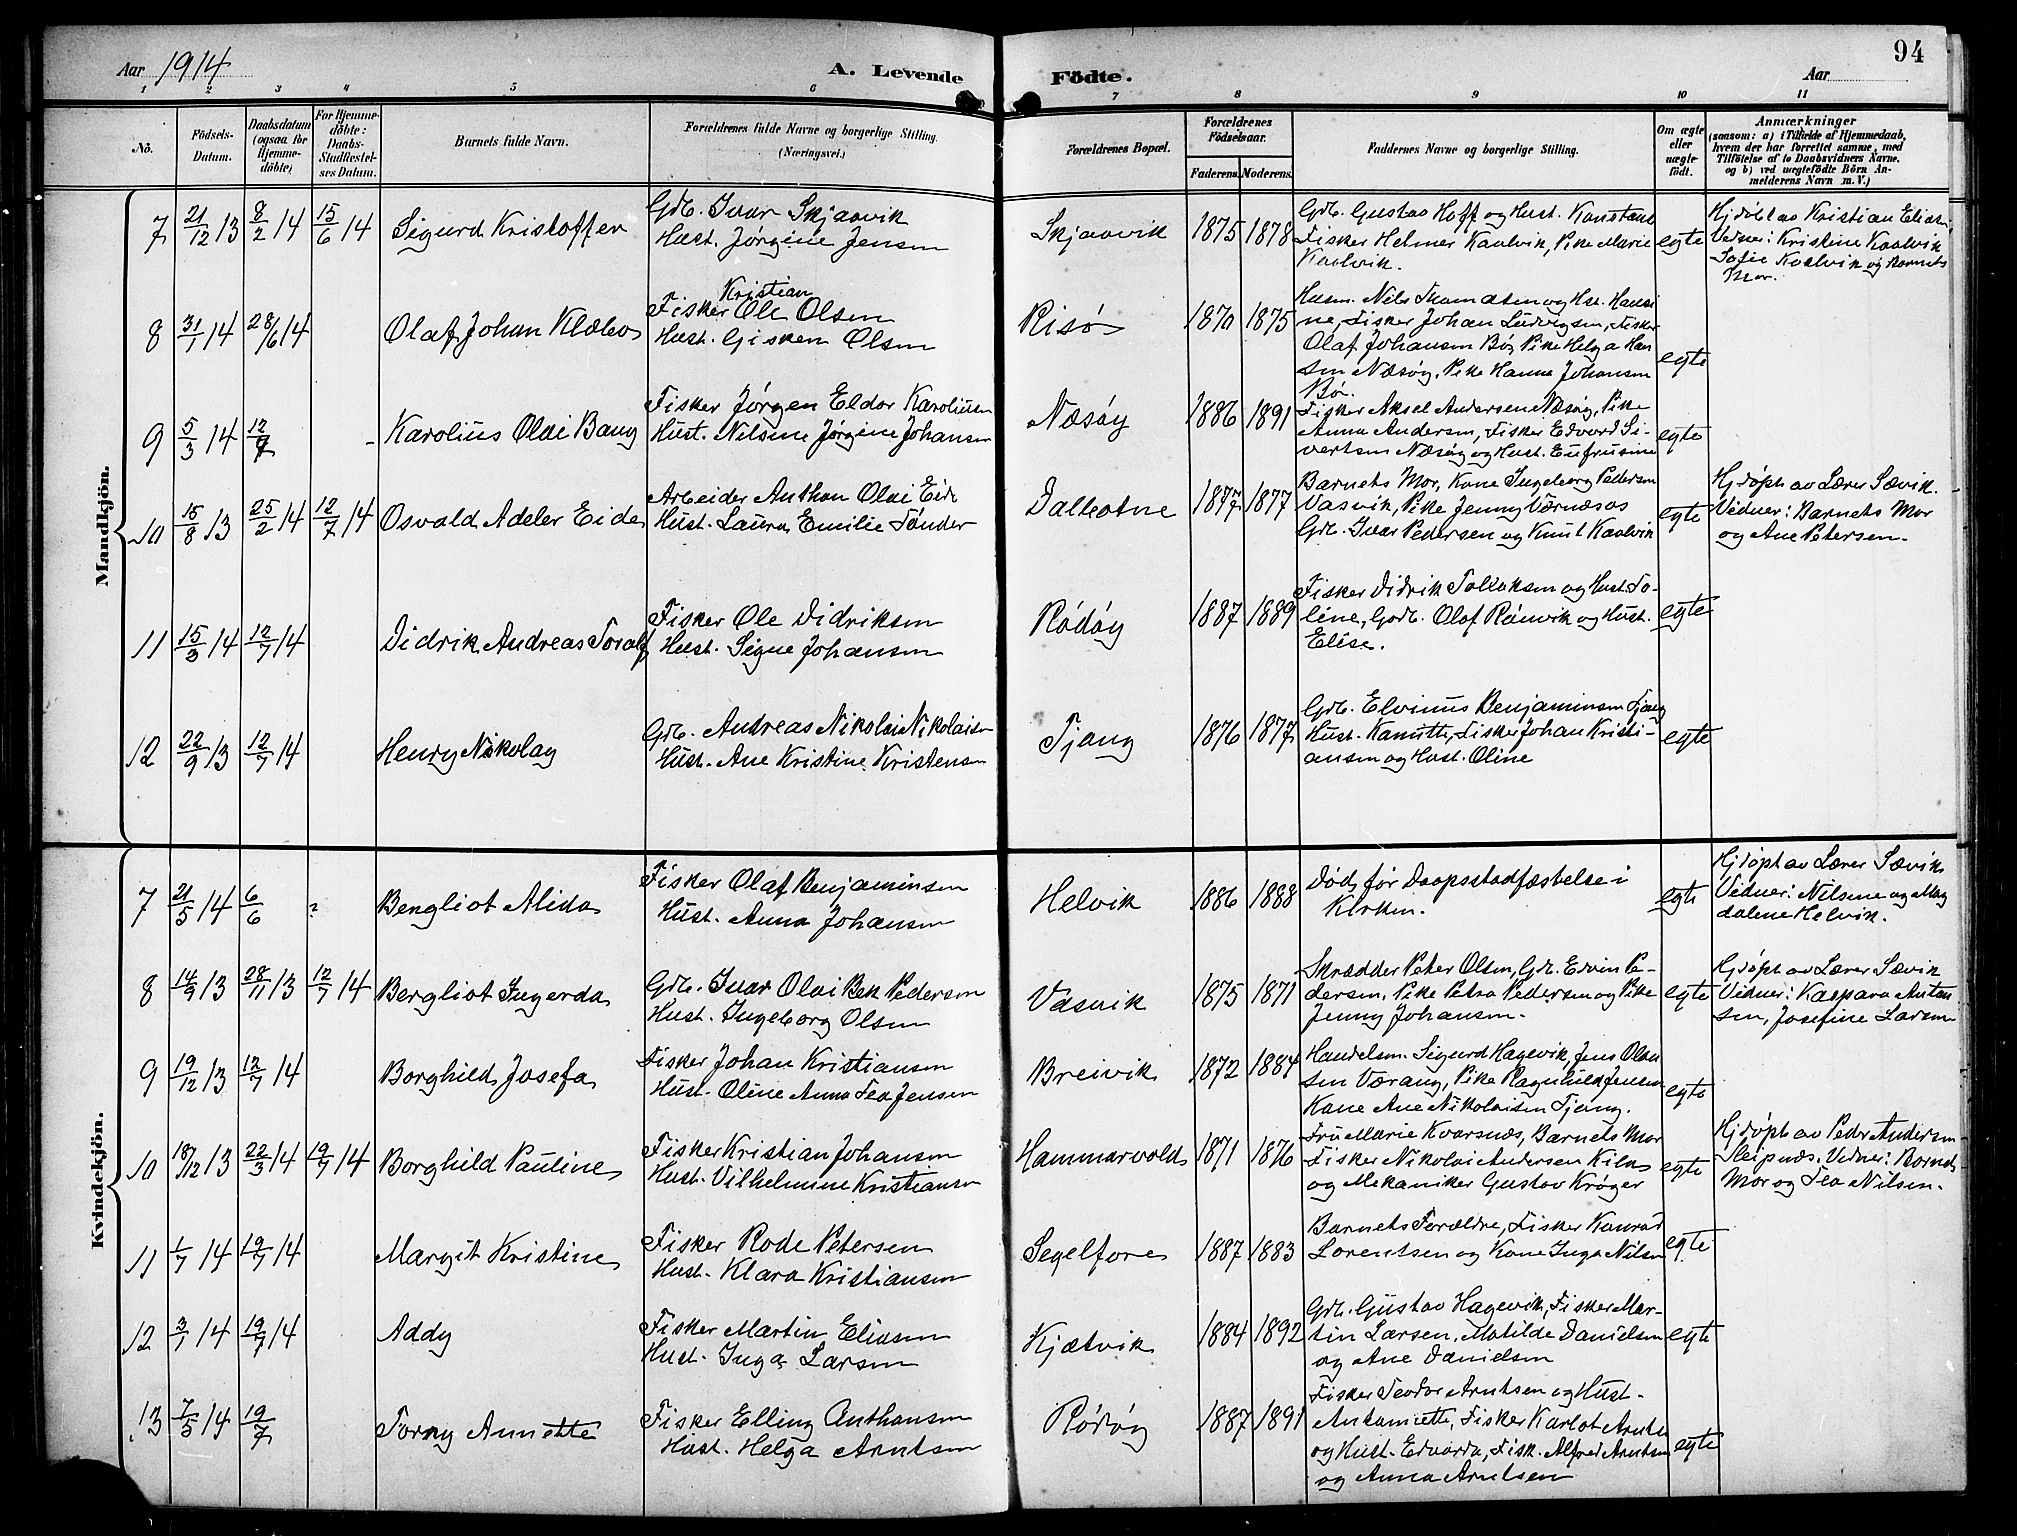 Aar 1914
A. Levende Födte.
Aar
94
1 2 3 4 5 6 7 8 9 10 11
No.
Födsels-Datum.
Daabsdatum (ogsaa for Hjemme-döbte)
For Hjemme-döbte: Daabs-Stadfæstel-ses Datum.
Barnets fulde Navn.
Forældrenes fulde Navne og borgerlige Stilling. (Næringsvei.)
Forældrenes Bopæl.
Forældrenes Födselsaar.
Faderens. Moderens.
Faddernes Navne og borgerlige Stilling.
Om ægte eller uægte födt.
Anmærkninger
(saasom: a) i Tilfælde af Hjemmedaab, hvem der har forrettet samme, med Tilföielse af to Daabsvidners Navne, og b) ved uægtefödte Börn An-melderens Navn m. V.)
Mandkjön.
7 21/12 13 8/2 14 15/6 14 Sigurd Kristoffer
Gdb. Ivar Skjaavik
Hust. Jørgine Jensen
Skjaavik 1875 1878
Gdb. Gustav Hoff og Hust. Konstanse
Fisker Helmer Kaalvik, Pike Marie
Kaalvik.
egte
Hjdøbt av Kristian Elias.
Vidner: Kristine Kaalvik
Sofie Kaalvik og Barnets
Mor.
8 31/1 14 28/6 14 Olaf Johan Klæbo
Kristian
Fisker Ole Olsen
Hust. Gisken Olsen
Risø 1870 1875
Husm. Nils Thomasen og Hst. Hansi
ne, Fisker Johan Ludvigsen, Fisker
Olaf Johansen Bø, Pike Helga Han
sen Næsøy, Pike Hanna Johansen
Bø.
egte
9 5/3 14 12/7 Karolius Olai Bang
Fisker Jørgen Eldor Karoliusen
Hust. Nilsine Jørgine Johansen
Næsøy 1886 1891
Fisker Aksel Andersen Næsøy, Pike
Anna Andersen, Fisker Edvard Si-
vertsen Næsøy og Hust. Eufrusine
egte
10 15/8 13 25/2 14 12/7 14 Osvald Adeler Eide
Arbeider Anthon Olai Eide
Hust. Laura Emilie Tønder
Dalbotne 1877 1877
Barnets Mor, Kone Ingeborg Pedersen
Vasvik, Pike Jenny Værnæsos
Gdb. Ivar Pedersen og Knut Kaalvik
egte
Hjdøpt av Lærer Sævik.
Vidner: Barnets Mor
og Ane Petersen.
11 15/3 14 12/7 14 Didrik Andreas Toralf
Fisker Ole Didriksen
Hust. Signe Johansen
Rødøy 1887 1889
Fisker Didrik Tollaksen og Hust. To-
line, Gdb. Olaf Rønvik og Hust.
Elise.
egte
12 22/9 13 12/7 14 Henry Nikolay
Gdb. Andreas Nikolai Nikolaisen
Hust. Ane Kristine Kristensen
Tjong 1876 1877
Gdb. Elvinus Benjaminsen Tjong
Hust. Kanutte, Fisker Johan Kristi-
ansen og Hust. Oline
egte
Kvindekjön.
7 21/5 14 6/6 ? Bergliot Alida
Fisker Olaf Benjaminsen
Hust. Anna Johansen
Helvik 1886 1888
Død før Daapsstadfæstelse i
Kirken.
egte
Hjdøpt av Lærer Sævik
Vidner: Nilsine og Mag
dalene Helvik.
8 14/9 13 28/11 13 12/7 14 Bergliot Ingerda
Gdb. Ivar Olai Bek Pedersen
Hust. Ingeborg Olsen
Vasvik 1875 1871
Skrædder Peter Olsen, Gdb. Edvin Pe-
dersen, Pike Petra Pedersen og Pike
Jenny Johansen.
egte
Hjdøpt av Lærer Sævik
Vidner: Kaspara Anton
sen, Josefine Larsen
9 19/12 13 12/7 14 Borghild Josefa
Fisker Johan Kristiansen
Hust. Oline Anna Tea Jensen
Breivik 1872 1884
Handelsm. Sigurd Hagevik, Jens Olau
sen Værang, Pike Ragnhild Jensen
Kone Ane Nikolaisen Tjong.
egte
10 18/12 13 22/3 14 19/7 14 Borghild Pauline
Fisker Kristian Johansen
Hust. Vilhelmine Kristiansen
Hammarvold 1871 1876
Fru Marie Kvarsnæs, Barnets Mor
Fisker Nikolai Andersen Kila
og Mekaniker Gustav Krøger
egte
Hjdøpt av Peder Andersen
Sleipnæs. Vidner: Barnets
Mor og Tea Nilsen.
11 1/7 14 19/7 14 Margit Kristine
Fisker Rode Petersen
Hust. Klara Kristiansen
Segelfore 1887 1883
Barnets Forældre, Fisker Konrad
Lorentsen og Kone Inga Nilsen
egte
12 3/1 14 19/7 14 Addy
Fisker Martin Eliasen
Hust. Inga Larsen
Kjælvik 1884 1892
Gdb. Gustav Hagevik, Fisker Mar-
tin Larsen, Matilde Danielsen
og Ane Danielsen
egte
13 7/5 14 19/7 Torny Annette
Fisker Elling Anthonsen
Hust. Helga Arntsen
Rødøy 1887 1891
Fisker Teodor Arntsen og Hust.
Antonette, Fisker Karlot Arnts
og Hust. Edvarda, Fisk. Alfred Arntsen
og Anna Arntsen
egte